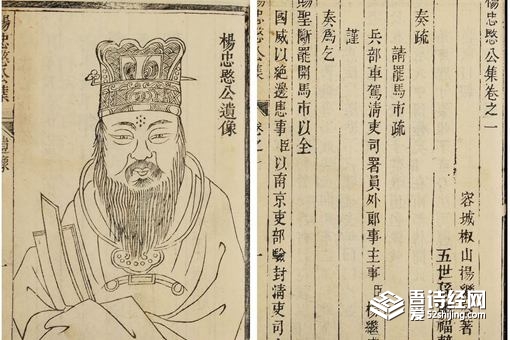 楊忠愍公集卷之一
容城椒山楊著
五世孫福
奏疏
請罷馬市疏
兵部車駕清吏司署員外郎事主事臣楊繼
謹
奏爲乞
賜聖斷罷開馬市以全
國威以絕邊患事臣以南京吏部驗封清吏司
楊忠愍公集
卷之一
楊忠愍公遺像
楊忠愍公集
遺像
吾爱诗经网
52shijing.com